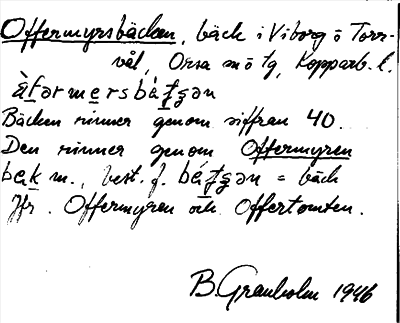 Offermyrsbäcken, bäck i Viborg ö Torr-
vål, Orsa sn ö tg, Kopparb. l.
àfərmersbátʂən
Bäcken rinner genom siffran 40.
Den rinner genom Offermyren
bɛk m., best. f. bátʂən = bäck
Jfr. Offermyren och Offertomten.
B. Granholm 1946